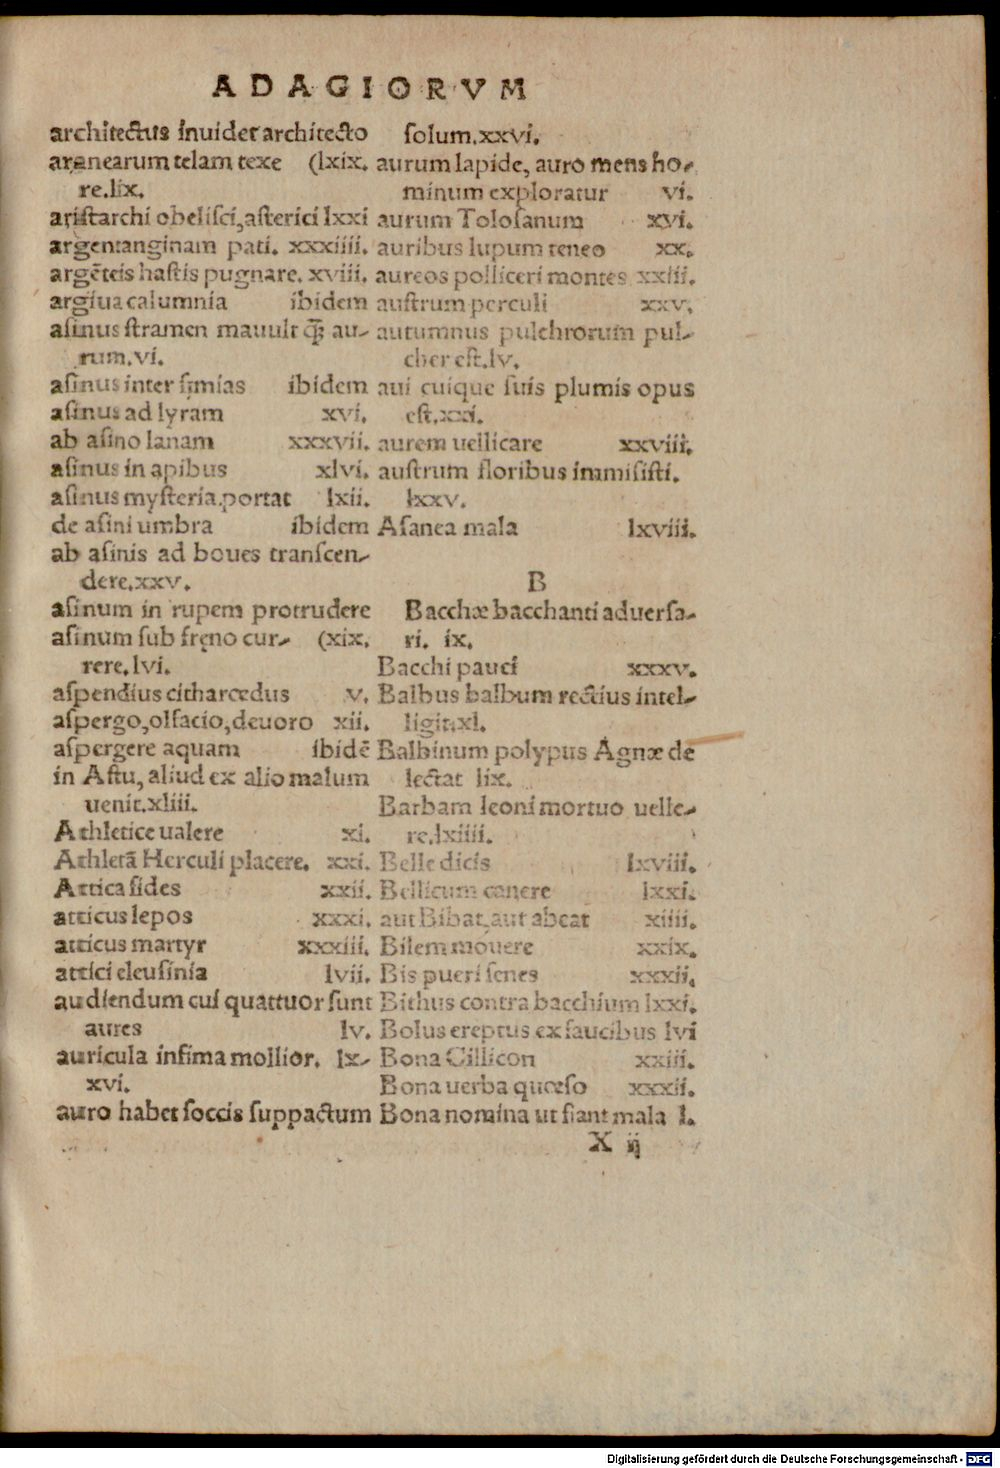 ADAGIORVM
architectus inuidet architecto
aranearum telam texe (lxix.
re.lix.
aristarchi obelisci,asterici lxxi
argentanginam pati. xxxiiii.
argēteis hastis pugnare. xviii.
argiua calumnia ibidem
asinus stramen mauult q̃ au-
rum.vi.
asinus inter simias ibidem
asinus ad lyram xvi.
ab asino lanam xxxvii.
asinus in apibus xlvi.
asinus mysteria portat lxii.
de asini umbra ibidem
ab asinis ad boues transcen-
dere.xxv.
asinum in rupem protrudere
asinum sub freno cur- (xix.
rere.lvi.
aspendius citharœdus v.
aspergo,olfacio,deuoro xii.
aspergere aquam ibidē
in Astu, aliud ex alio malum
uenit.xliii.
Athletice ualere xi.
Athletā Herculi placere. xxi.
Attica fides xxii.
atticus lepos xxxi.
atticus martyr xxxiii.
attici eleusinia lvii.
audiendum cui quattuor sunt
aures lv.
auricula infima mollior. lx-
xvi.
auro habet soccis suppactum
solum.xxvi.
aurum lapide, auro mens ho-
minum exploratur vi.
aurum Tolosanum xvi.
auribus lupum teneo xx.
aureos polliceri montes xxiii.
austrum perculi xxv.
autumnus pulchrorum pul-
cher est.lv.
aui cuique suis plumis opus
est.xxi.
aurem uellicare xxviii.
austrum floribus immisisti.
lxxv.
Asanea mala lxviii.
B
Bacchæ bacchanti aduersa-
ri. ix.
Bacchi pauci xxxv.
Balbus balbum rectius intel-
ligit.xl.
Balbinum polypus Agnæ de
lectat lix.
Barbam leoni mortuo uelle-
re.lxiiii.
Belle dicis lxviii.
Bellicum canere lxxi.
aut Bibat,aut abeat xiiii.
Bilem mouere xxix.
Bis pueri senes xxxii.
Bithus contra bacchium lxxi.
Bolus ereptus ex faucibus lvi
Bona Cillicon xxiii.
Bona uerba quœso xxxii.
Bona nomina ut fiant mala l.
X ij
Digitalisierung gefördert durch die Deutsche Forschungsgemeinschaft - DFG